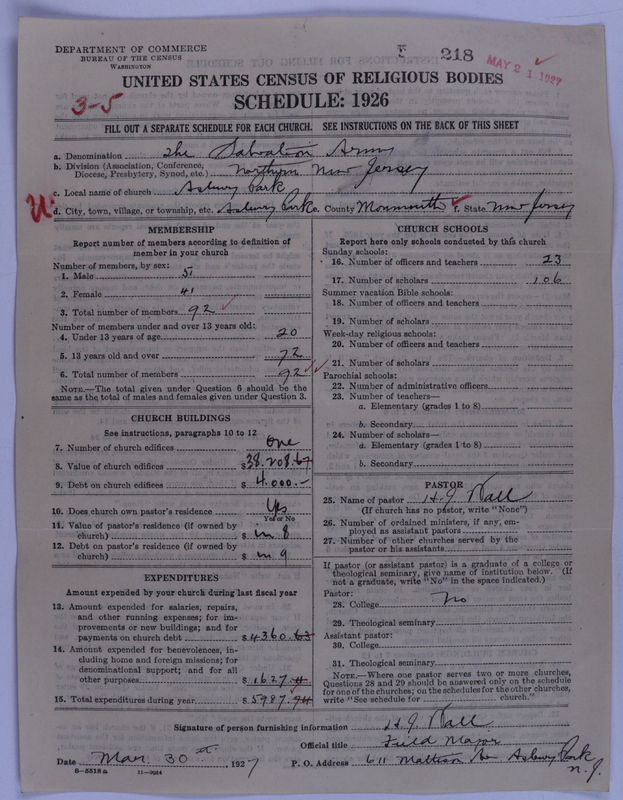 DEPARTMENT OF COMMERCE
BUREAU OF THE CENSUS
WASHINGTON
218
MAY 21 1927
UNITED STATES CENSUS OF RELIGIOUS BODIES
3-5
SCHEDULE: 1926
FILL OUT A SEPARATE SCHEDULE FOR EACH CHURCH. SEE INSTRUCTIONS ON THE BACK OF THIS SHEET
a. Denomination The Salvation Army
b. Division (Association, Conference, Diocese, Presbytery, Synod, etc.) Northern New Jersey
c. Local name of church Asbury Park
d. City, town, village, or township, etc. Asbury Park e. County Monmouth f. State New Jersey
MEMBERSHIP
Report number of members according to definition of
member in your church
Number of members, by sex:
1. Male 51
2. Female 41
3. Total number of members 92
Number of members under and over 13 years old:
4. Under 13 years of age 20
5. 13 years old and over 72
6. Total number of members 92
NOTE.—The total given under Question 6 should be
same as the total of males and females given under Question 3.
CHURCH BUILDINGS
See instructions, paragraphs 10 to 12
7. Number of church edifices One
8. Value of church edifices $38.208.67
9. Debt on church edifices $4.000.-
10. Does church own pastor's residence Yes
Yes or No
11. Value of pastor's residence (if owned by
church) $ in 8
12. Debt on pastor's residence (if owned by
church) $ in 9
EXPENDITURES
Amount expended by your church during last fiscal year
13. Amount expended for salaries, repairs,
and other running expenses; for im-
provements or new buildings; and for
payments on church debt $4360.63
14. Amount expended for benevolences, in-
cluding home and foreign missions; for
denominational support; and for all
other purposes $1627.
15. Total expenditures during year $5987.
CHURCH SCHOOLS
Report here only schools conducted by this church
Sunday schools:
16. Number of officers and teachers 23
17. Number of scholars 106
Summer vacation Bible schools:
18. Number of officers and teachers
19. Number of scholars
Week-day religious schools:
20. Number of officers and teachers
21. Number of scholars
Parochial schools:
22. Number of administrative officers
23. Number of teachers—
a. Elementary (grades 1 to 8)
b. Secondary
24. Number of scholars—
a. Elementary (grades 1 to 8)
b. Secondary
PASTOR
25. Name of pastor H. J. Wall
(If church has no pastor, write "None")
26. Number of ordained ministers, if any, em-
ployed as assistant pastors
27. Number of other churches served by the
pastor or his assistants
If pastor (or assistant pastor) is a graduate of a college or
theological seminary, give name of institution below. (If
not a graduate, write "No" in the space indicated.)
Pastor:
28. College No
29. Theological seminary
Assistant pastor:
30. College
31. Theological seminary
NOTE.—Where one pastor serves two or more churches,
Questions 28 and 29 should be answered only on the schedule
for one of the churches; on the schedules for the other churches,
write "See schedule for church."
Signature of person furnishing information H. J. Wall
Official title Field Major
Date Mar. 30th 1927 P. O. Address 611 Mattison Ave Asbury Park
N. J.
8-5518 a 11-9024